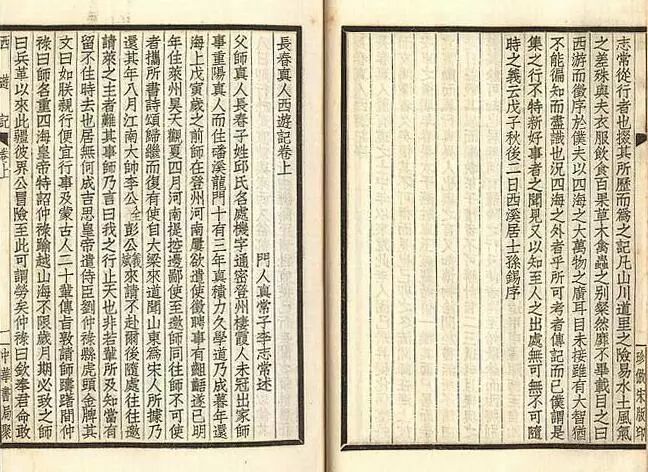 珍倣宋版印
志常從行者也掇其所歷而為之記凡山川道里之險易水土風氣
之差殊與夫衣服飲食百果草木禽蟲之別粲然靡不畢載目之曰
西游而徵序於僕夫以四海之大萬物之廣耳目未接雖有大智猶
不能徧知而盡識也況四海之外者乎所可考者傳記而已僕謂是
集之行不特新好事者之聞見又以知至人之出處無可無不可隨
時之義云戊子秋後二日西溪居士孫錫序
長春真人西遊記卷上
門人真常子李志常述
父師真人長春子姓邱氏名處機字通密登州棲霞人未冠出家師
事重陽真人而住磻溪龍門十有三年真積力久學道乃成暮年還
海上戊寅歲之前師在登州河南屢欲遣使徵聘事有齟齬遂已明
年住萊州昊天觀夏四月河南提控邊鄙使至邀師同往師不可使
者攜所書詩頌歸繼而復有使自大梁來道聞山東為宋人所據乃
還其年八月江南大帥李公全彭公義斌來請不赴爾後隨處往往邀
請萊之主者難其事師乃言曰我之行止天也非若輩所及知當有
留不住時去也居無何成吉思皇帝遣侍臣劉仲祿縣虎頭金牌其
文曰如朕親行便宜行事及蒙古人二十輩傳旨敦請師躊躇間仲
祿曰師名重四海皇帝特詔仲祿踰越山海不限歲月期必致之師
曰兵革以來此疆彼界公冒險至此可謂勞矣仲祿曰欽奉君命敢
西遊記 卷上 中華書局聚